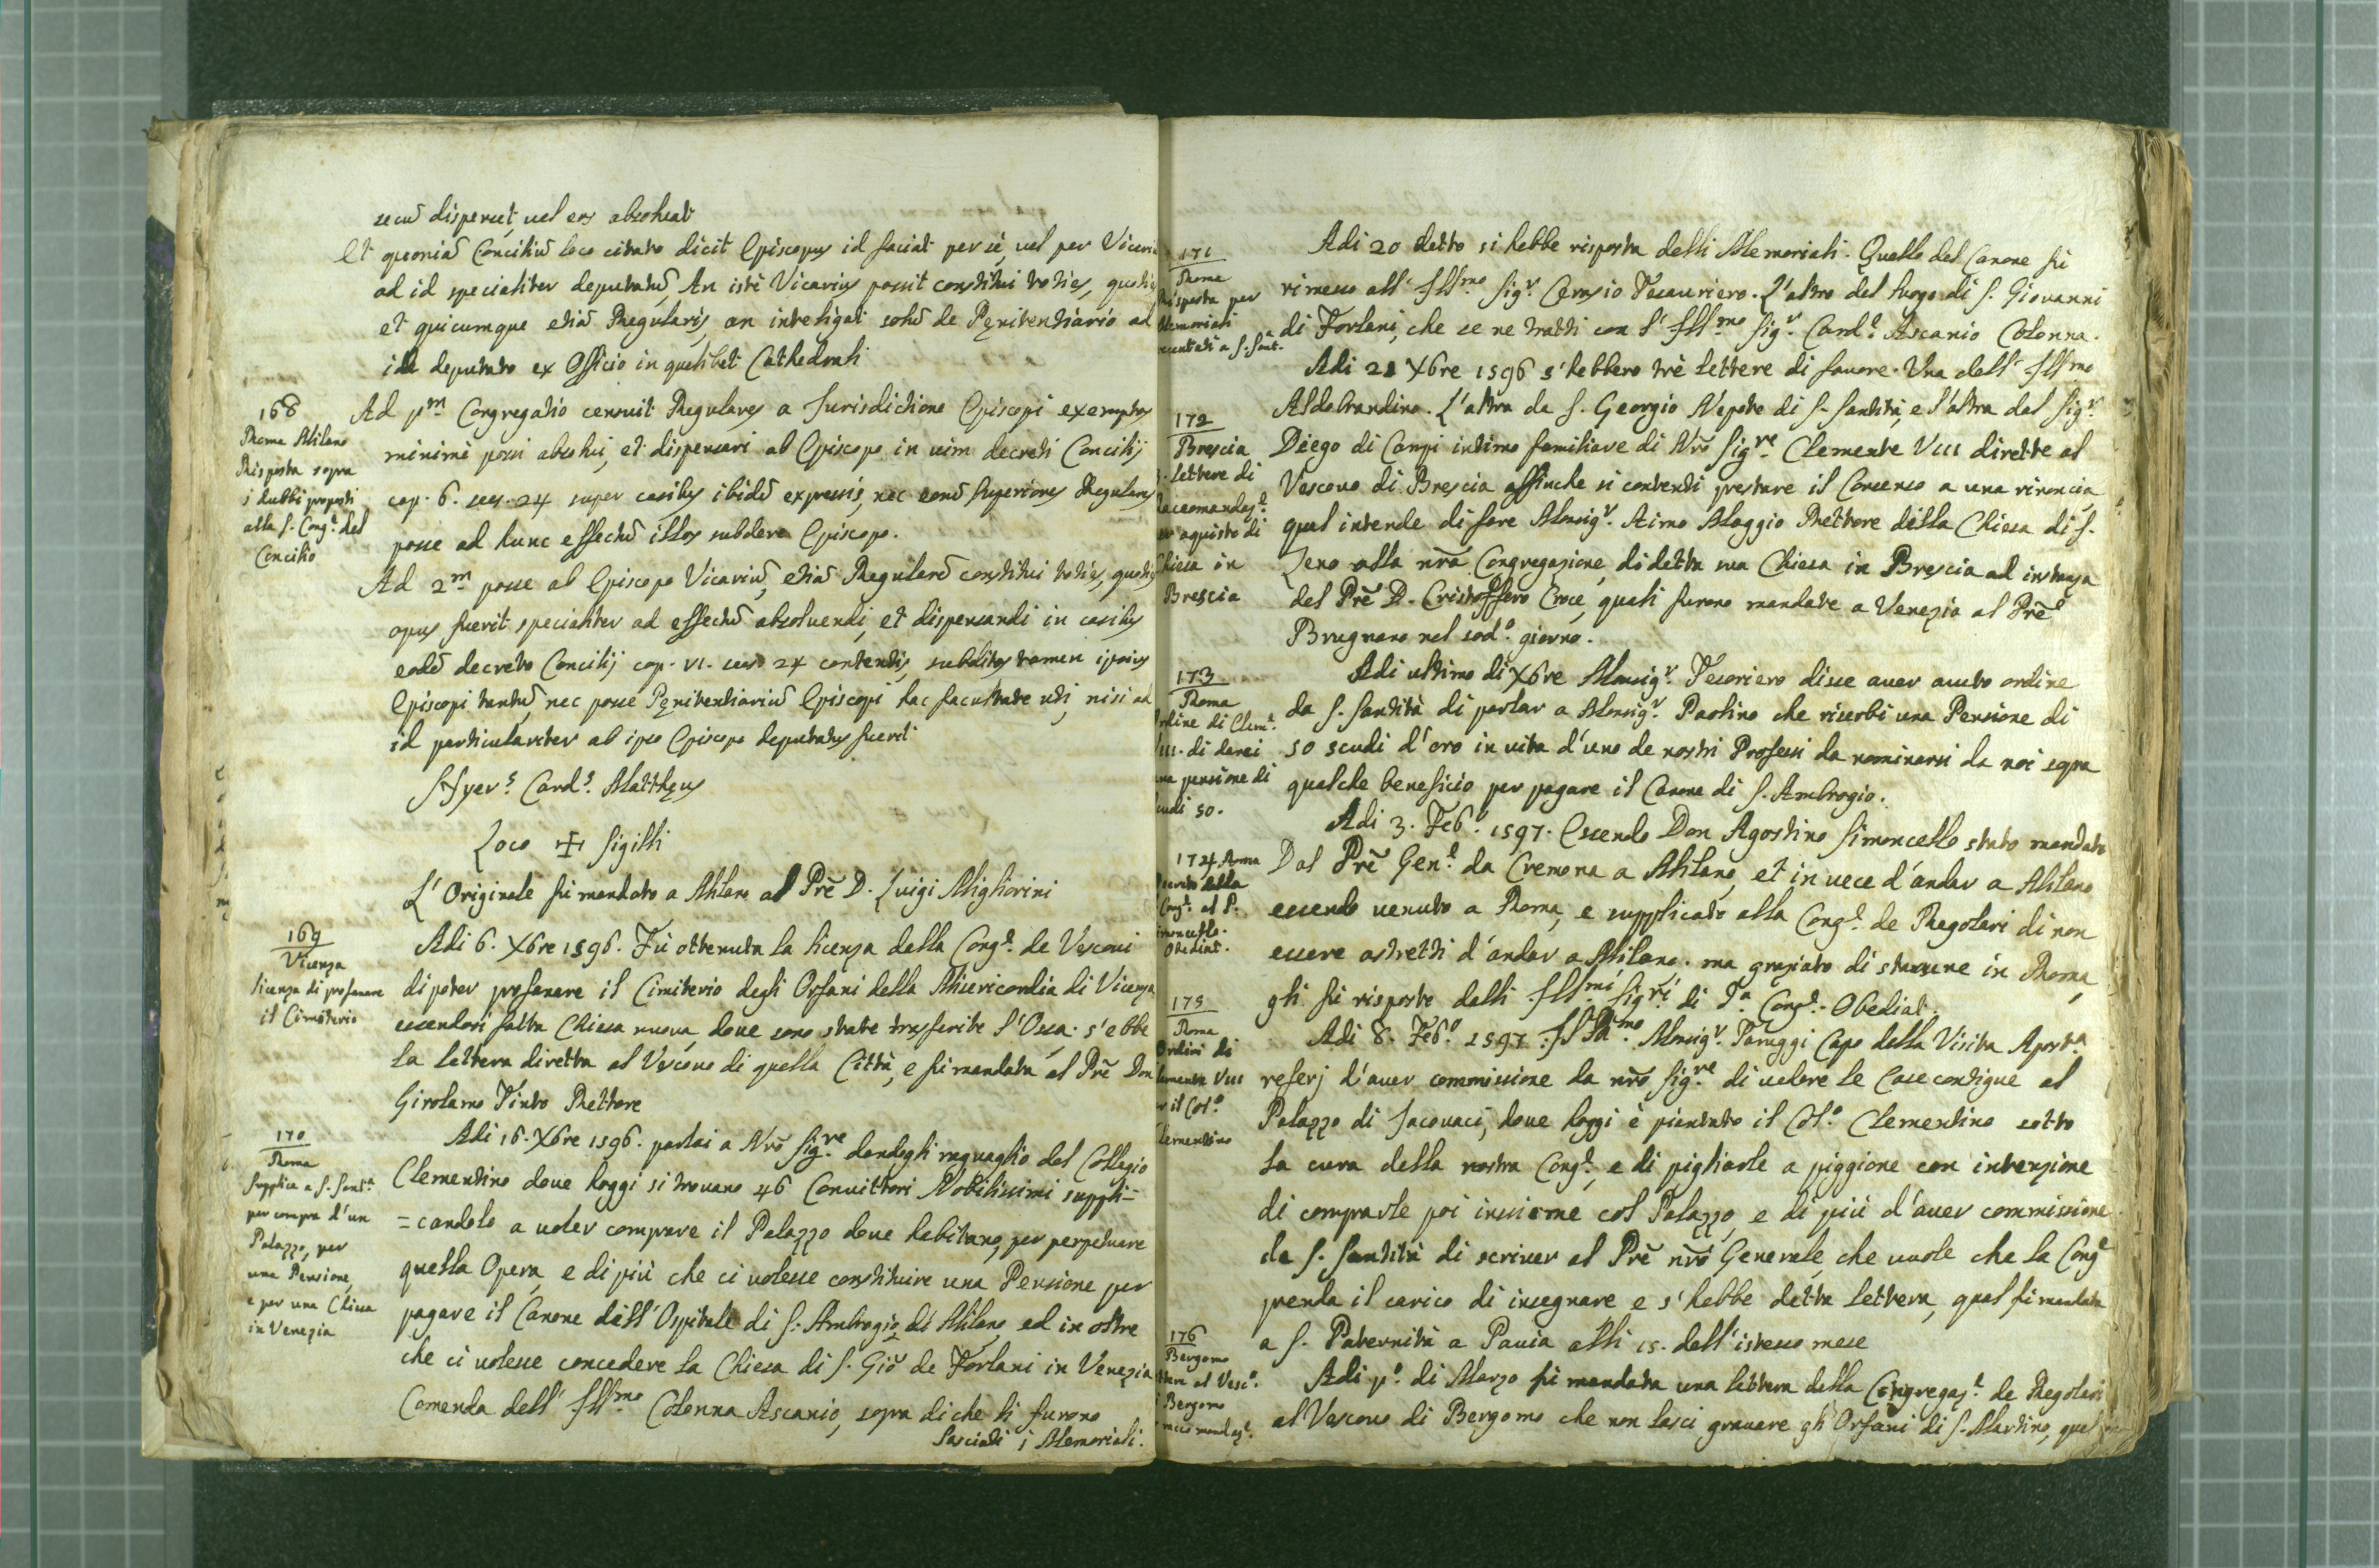 secũ dispenset, uel eos absoluat
Et quoniã Conciliũ loco citato dicit Episcopus id faciat per se, uel per Vicariũ
ad id specialiter deputatũ, An isti Vicarius possit constitui toties, quoties
et quicumque etiã Regularis, an inteligati solũ de Pęnitentiario ad
id deputato ex Officio in qualibet Cathedrali
168
Roma Milano
Risposta sopra
i dubbi proposti
alla S. Cong.e del
Concilio
Ad pm Congregatio censuit Regulares a Jurisdictione Episcopi exemptos
minimè possi absolui, et dispensari ab Episcopo in uim decreti Concilij
cap. 6. sess. 24 super casibus ibidẽ expressis, nec eorũ Superiores Regulares
posse ad hunc effectũ illos subdere Episcopo.
Ad 2m posse ab Episcopo Vicariũ, etiã Regularẽ constitui toties, quoties
opus fuerit specialiter ad effectũ absoluendi, et dispensandi in casibus
eodẽ decreto Concilij cap. VI. sess. 24 contentis, subditos tamen ipsius
Episcopi tantũ, nec posse Pęnitentiariũ Episcopi hac facultate uti, nisi ad
id particulariter ab ipso Episcopo deputatus fuerit
Hyer.s Card.s Matthęus
Loco ✠ Sigilli
L'Originale fù mandato a Milano al Prẽ D. Luigi Migliorini
169
Vicenza
licenza di profanare
il Cimiterio
Adi 6. Xbre 1596. Fù ottenuta la licenza della Cong.e de Vescoui
di poter profanare il Cimiterio degli Orfani della Misericordia di Vicenza
essendosi fatta Chiesa nuoua, doue sono state trasferite l'Ossa. s'ebbe
la lettera diretta al Vescouo di quella Città, e fù mandata al Prẽ Don
Girolamo Tinto Rettore
170
Roma
Supplica a S. Sant.a
per compra d'un
Palazzo, per
una Pensione,
e per una Chiesa
in Venezia
Adi 16. Xbre 1596. parlai a Nrõ Sig.re dandogli raguaglio del Collegio
Clementino doue hoggi si trouano 46 Conuittori Nobilissimi suppli=
=candolo a uoler comprare il Palazzo doue habitano, per perpetuare
quella Opera, e di più che ci uolesse constituire una Pensione per
pagare il Canone dell'Ospitale di S. Ambrogio di Milano, ed in oltre
che ci uolesse concedere la Chiesa di S. Giõ de Forlani in Venezia
Comenda dell' Ill.mo Colonna Ascanio, sopra di che li furono
lasciati i Memoriali.
171
Roma
Risposta per
Memoriali
a S. Sant.a
Adi 20 detto si hebbe risposta delli Memoriali. Quello del Canone fù
rimesso all' Ill.mo Sig.r Cerasio Tesauriero. L'altro del luogo di S. Giovanni
di Forlani, che se ne tratti con l' Ill.mo Sig.r Card.l Ascanio Colonna.
172
Brescia
3. lettere di
Raccomandaz.e
per aquisto di
Chiesa in
Brescia
Adi 21 Xbre 1596 s'hebbero trè lettere di fauore. Una dell' Ill.mo
Aldobrandino. L'altra da S. Georgio Nepote di S. Santità, e l'altra dal Sig.r
Diego di Campi intimo familiare di Nrõ Sig.re Clemente VIII dirette al
Vescouo di Brescia affinche si contenti prestare il Consenso a una rinoncia,
qual intende di fare Monsig.r Aimo Maggio Rettore della Chiesa di S.
Zeno alla nrã Congregazione, di detta sua Chiesa in Brescia ad instanza
del Prẽ D. Cristoffero Croce, quali furono mandate a Venezia al Prẽ
Brugnaro nel sod.o giorno.
173
Roma
Ordine di Clem.e
VIII. di darci
una pensione di
scudi 50.
Adi ultimo di Xbre Monsig.r Tesoriero disse auer auuto ordine
da S. Santità di parlar a Monsig.r Paolino che riserbi una Pensione di
50 scudi d'oro in uita d'uno de nostri Professi da nominarsi da noi sopra
qualche beneficio per pagare il Canone di S. Ambrogio.
174. Roma
della
Cong.e al P.
Obediat.
Adi 3. Feb.o 1597. Essendo Don Agostino Simoncello stato mandato
Dal Prẽ Gen.l da Cremona a Milano, et in uece d'andar a Milano
essendo uenuto a Roma, e supplicato alla Cong.e de Regolari di non
essere astretti d'andar a Milano. ma graziato di starsene in Roma,
gli fù risposto dalli Ill.mi Sig.ri di d.a Cong.e Obediat.
175
Roma
Ordini di
Clemente VIII
per il Col.o
Clementino
Adi 8. Feb.o 1597. Monsig.r Taruggi Capo della Visita Apost.a
referj d'auer commissione da nrõ Sig.re di uedere le Case contigue al
Palazzo di Jacouaci, doue hoggi è piantato il Col.o Clementino sotto
la cura della nostra Cong.e, e di pigliarle a piggione con intenzione
di comprarle poi insieme col Palazzo, e di più d'auer commissione
da S. Santità di scriuer al Prẽ nrõ Generale, che uuole che la Cong.e
prenda il carico di insegnare e s'hebbe detta lettera, qual fù mandata
a S. Paternità a Pauia alli 15. dell'istesso mese
176
Bergomo
al Vesc.o
Bergomo
Adi p.o di Marzo fù mandata una lettera della Congregaz.e de Regolari
al Vescouo di Bergomo che non lasci grauare gli Orfani di S. Martino, qual